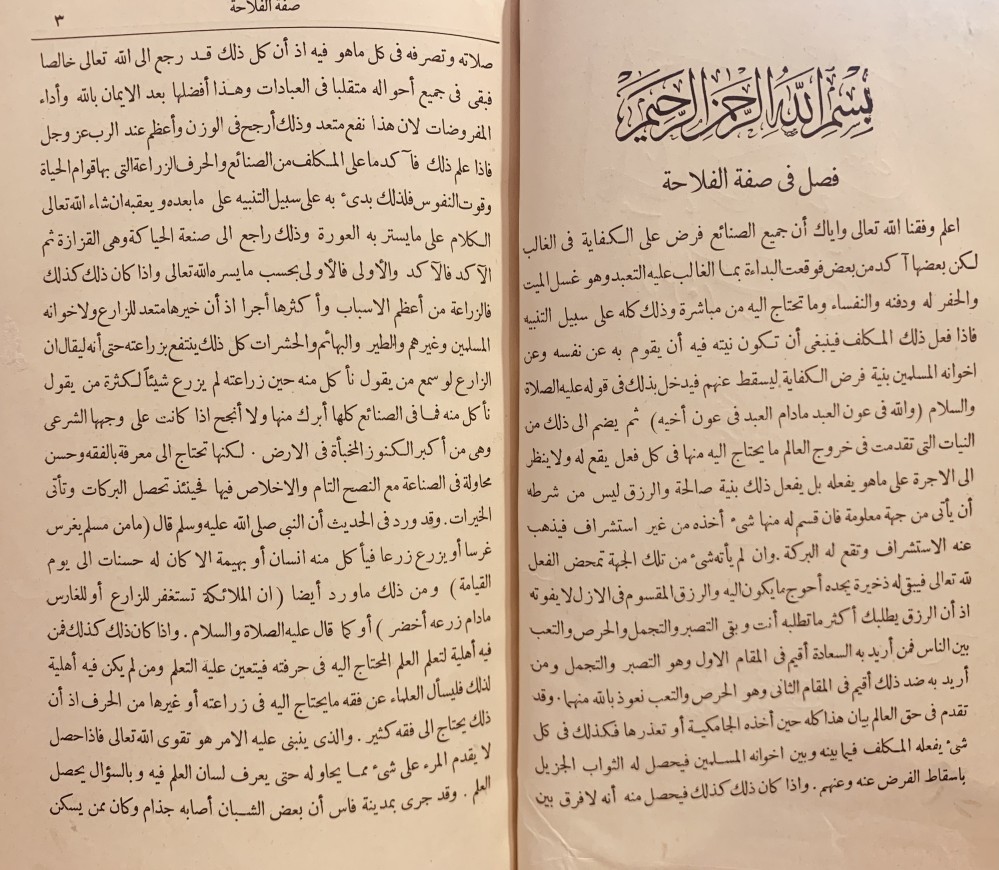 بسم الله الرحمن الرحيم
فصل فى صفة الفلاحة
اعلم وفقنا الله تعالى واياك أن جميع الصنائع فرض على الكفاية فى الغالب
لكن بعضها آكد من بعض فوقعت البداءة بما الغالب عليه التعبد وهو غسل الميت
والحفر له ودفنه والنفساء وما تحتاج اليه من مباشرة وذلك كله على سبيل التنبيه
فاذا فعل ذلك المكلف فينبغى أن تكون نيته فيه أن يقوم به عن نفسه وعن
اخوانه المسلمين بنية فرض الكفاية ليسقط عنهم فيدخل بذلك فى قوله عليه الصلاة
والسلام (والله فى عون العبد مادام العبد فى عون أخيه) ثم يضم الى ذلك من
النيات التى تقدمت فى خروج العالم ما يحتاج اليه منها فى كل فعل يقع له ولا ينظر
الى الاجرة على ماهو يفعله بل يفعل ذلك بنية صالحة والرزق ليس من شرطه
أن يأتى من جهة معلومة فان قسم له منها شىء أخذه من غير استشراف فيذهب
عنه الاستشراف وتقع له البركة . وان لم يأته شىء من تلك الجهة تمحض الفعل
لله تعالى فيبقى له ذخيرة يجده أحوج ما يكون اليه والرزق المقسوم فى الازل لا يفوته
اذ أن الرزق يطلبك أكثر ما تطلبه أنت وبقى التصبر والتجمل والحرص والتعب
بين الناس فمن أريد به السعادة أقيم فى المقام الاول وهو التصبر والتجمل ومن
أريد به ضد ذلك أقيم فى المقام الثانى وهو الحرص والتعب نعوذ بالله منهما . وقد
تقدم فى حق العالم بيان هذا كله حين أخذه الجامكية أو تعذرها فكذلك فى كل
شىء يفعله المكلف فيما بينه وبين اخوانه المسلمين فيحصل له الثواب الجزيل
باسقاط الفرض عنه وعنهم . واذا كان ذلك كذلك فيحصل منه أنه لا فرق بين
صفة الفلاحة
٣
صلاته وتصرفه فى كل ماهو فيه اذ أن كل ذلك قد رجع الى الله تعالى خالصا
فبقى فى جميع أحواله متقلبا فى العبادات وهذا أفضلها بعد الايمان بالله وأداء
المفروضات لان هذا نفع متعد وذلك أرجح فى الوزن وأعظم عند الرب عز وجل
فاذا علم ذلك فآكد ما على المكلف من الصنائع والحرف الزراعة التى بها قوام الحياة
وقوت النفوس فلذلك بدىء به على سبيل التنبيه على ما بعده ويعقبه ان شاء الله تعالى
الكلام على ما يستر به العورة وذلك راجع الى صنعة الحياكة وهى القزازة ثم
الآكد فالآكد والأولى فالأولى بحسب ما يسره الله تعالى واذا كان ذلك كذلك
فالزراعة من أعظم الاسباب وأكثرها أجرا اذ أن خيرها متعد للزارع ولاخوانه
المسلمين وغيرهم والطير والبهائم والحشرات كل ذلك ينتفع بزراعته حتى أنه ليقال ان
الزارع لو سمع من يقول نأكل منه حين زراعته لم يزرع شيئاً لكثرة من يقول
نأكل منه فما فى الصنائع كلها أبرك منها ولا أنجح اذا كانت على وجهها الشرعى
وهى من أكبر الكنوز المخبأة فى الارض . لكنها تحتاج الى معرفة بالفقه وحسن
محاولة فى الصناعة مع النصح التام والاخلاص فيها فحينئذ تحصل البركات وتأتى
الخيرات . وقد ورد فى الحديث أن النبى صلى الله عليه وسلم قال (مامن مسلم يغرس
غرسا أو يزرع زرعا فيأكل منه انسان أو بهيمة الا كان له حسنات الى يوم
القيامة) ومن ذلك ماورد أيضا (ان الملائكة تستغفر للزارع أو للغارس
مادام زرعه أخضر) أو كما قال عليه الصلاة والسلام . واذا كان ذلك كذلك فمن
فيه أهلية لتعلم العلم المحتاج اليه فى حرفته فيتعين عليه التعلم ومن لم يكن فيه أهلية
لذلك فليسأل العلماء عن فقه مايحتاج اليه فى زراعته أو غيرها من الحرف اذ أن
ذلك يحتاج الى فقه كثير . والذى ينبنى عليه الامر هو تقوى الله تعالى فاذا حصل
لا يقدم المرء على شىء مما يحاوله حتى يعرف لسان العلم فيه وبالسؤال يحصل
العلم . وقد جرى بمدينة فاس أن بعض الشبان أصابه جذام وكان ممن يسكن